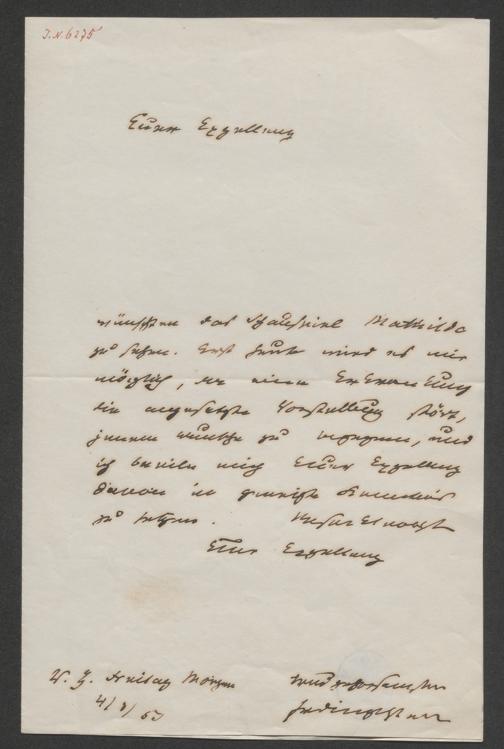 J.N. 6275
Euer Exzellenz
wünschten das Schauspiel Mathilde
zu sehen. Erst heute wird es mir
möglich, da eine Erkrankung
die angesetzte Vorstellung stört,
jenem Wunsche zu begegnen, und
ich beeile mich Euer Exzellenz
davon in Kenntnis
zu setzen.
Euer Exzellenz
Freitag Morgen
4/ / 53